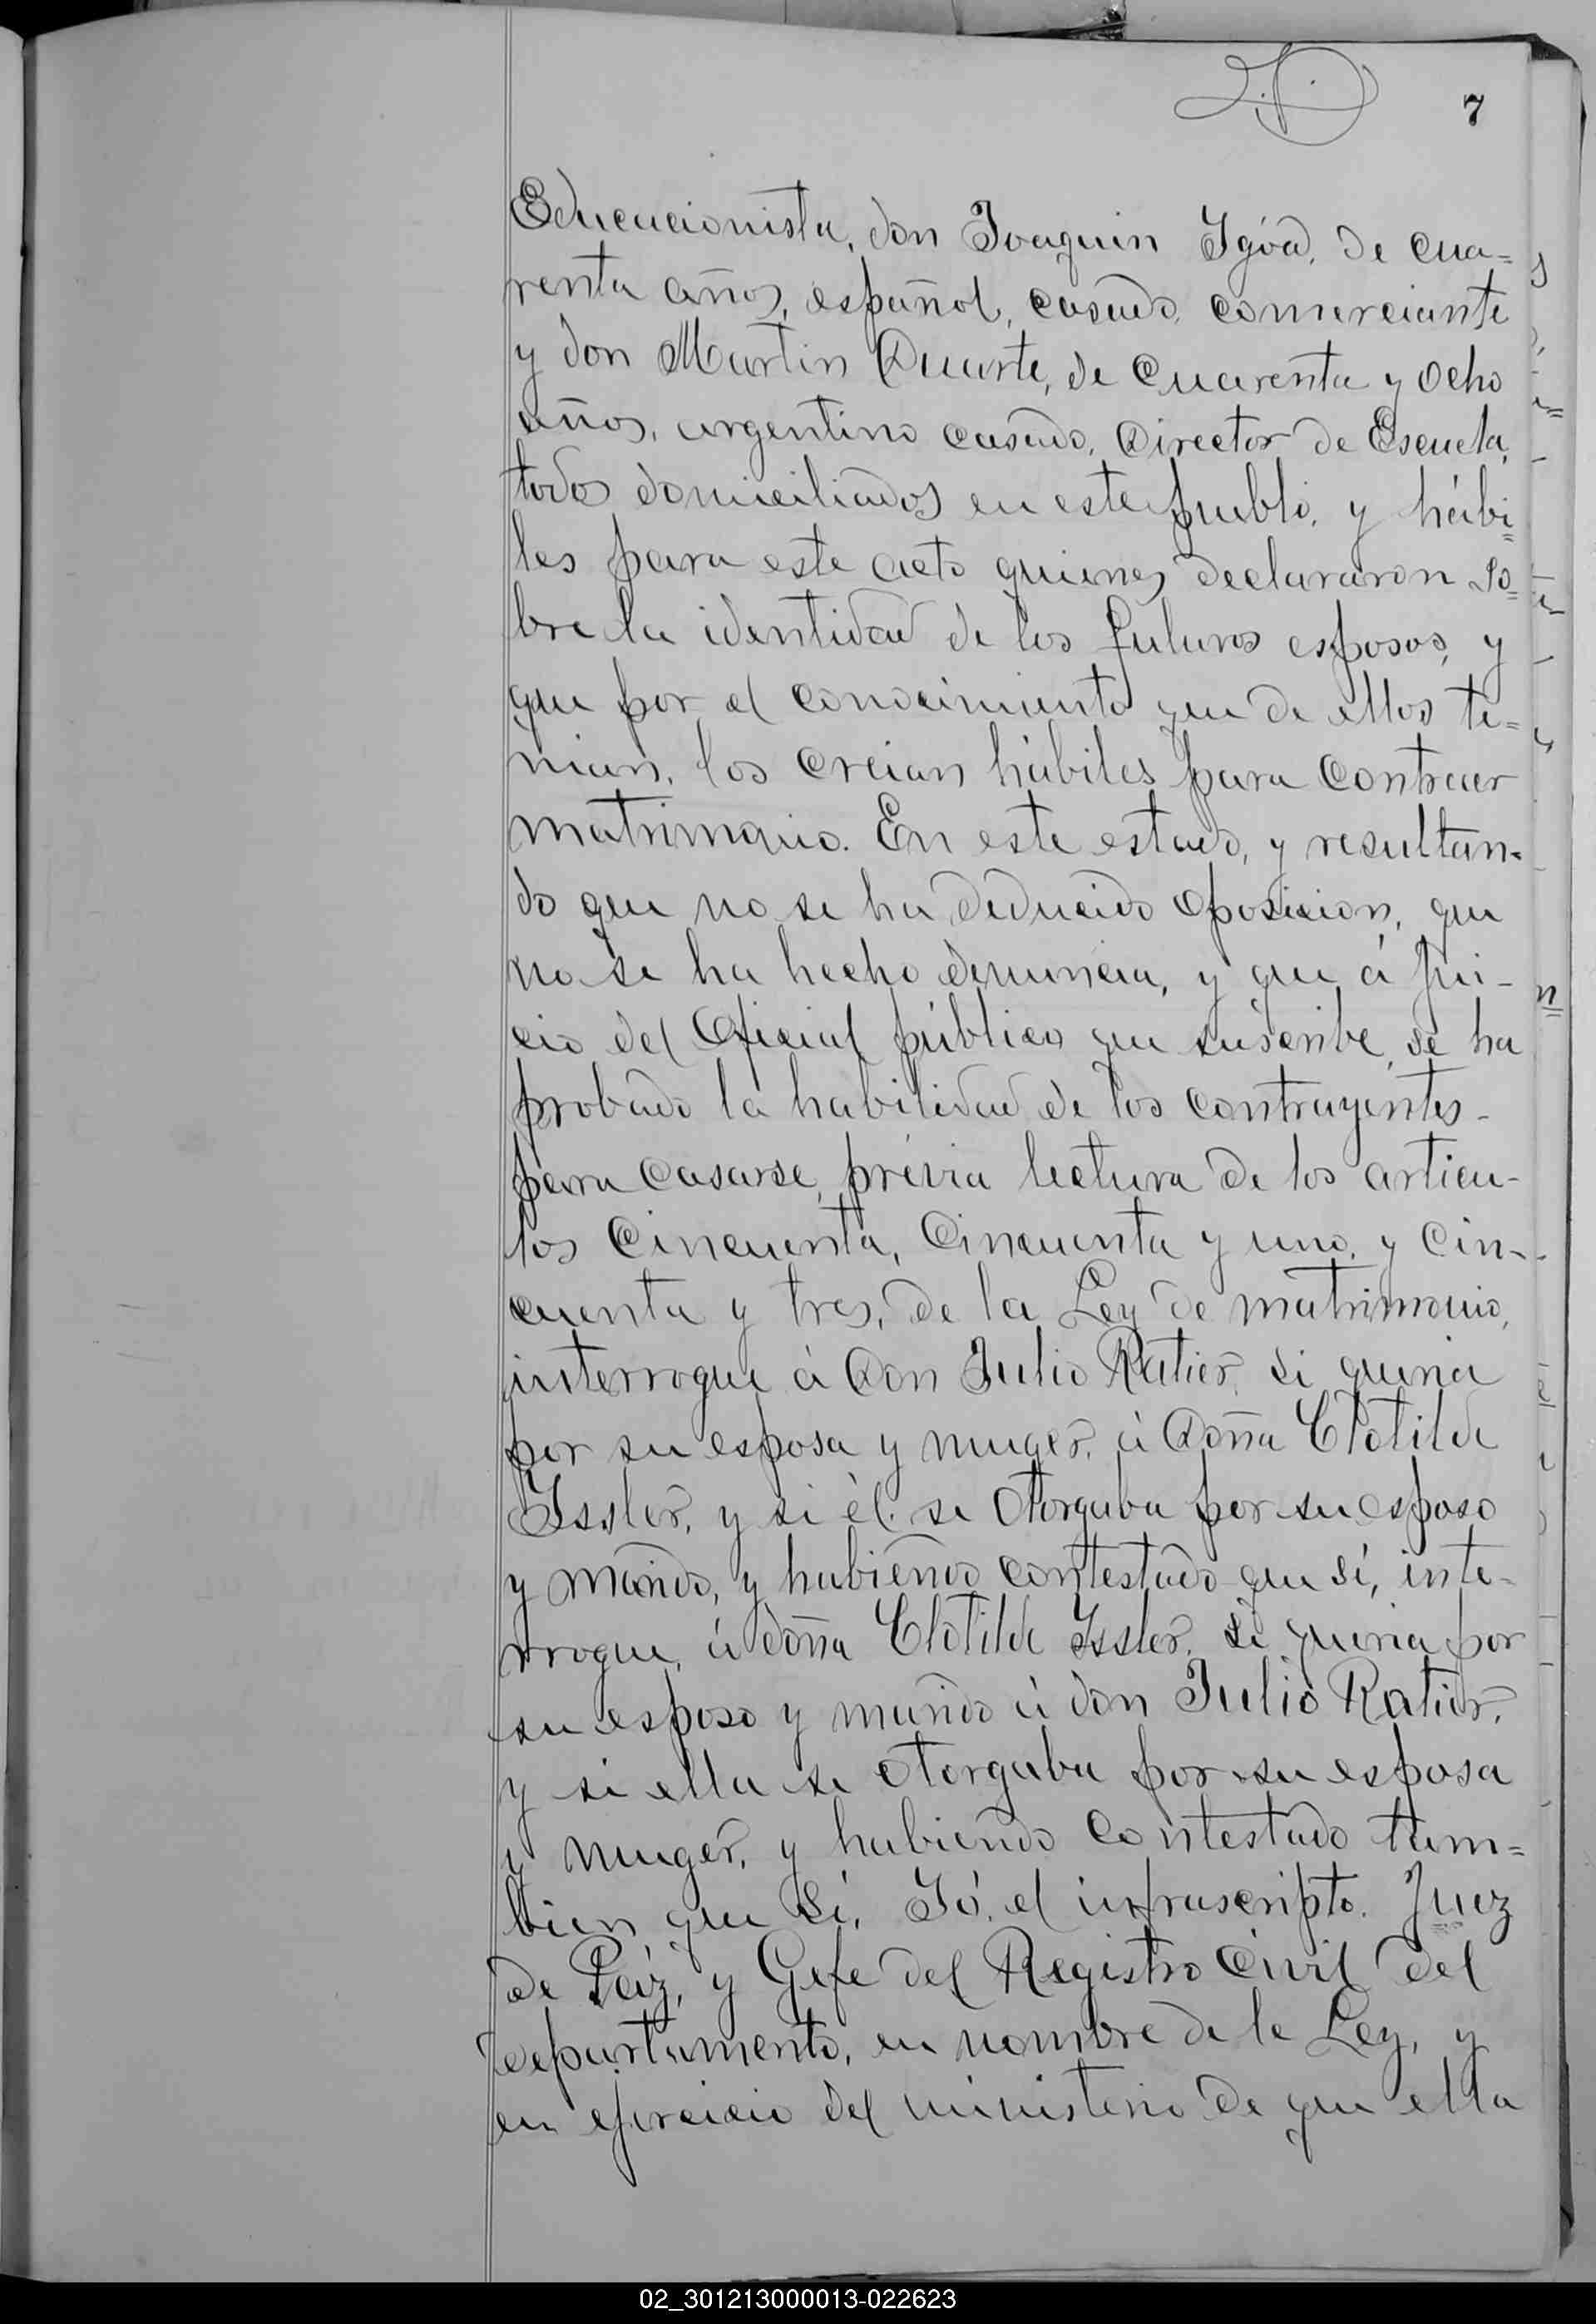 7
Educacionista, don Joaquin Igóa, de cua=
renta años, español, casado, comerciante
y don Martin Duarte, de cuarenta y ocho
años, argentino casado, Director de Escuela,
todos domiciliados en este pueblo, y hábi=
les para este acto quienes declararon so=
bre la identidad de los futuros esposos, y
que por el conocimiento que de ellos te=
nian, los creian hábiles para contraer
matrimonio. En este estado, y resultan-
do que no se ha deducido oposicion, que
no se ha hecho denuncia, y que á jui-
cio del Oficial público que suscribe, se ha
probado la habilidad de los contrayentes-
para casarse, prévia lectura de los articu-
los cincuenta, cincuenta y uno, y cin-
cuenta y tres, de la Ley de matrimonio,
interrogue á Don Julio Ratier, si queria
por su esposa y muger, á Doña Clotilde
Issler, y si él se otorgaba por su esposo
y marido, y habiendo contestado que sí, inte-
rrogue, á doña Clotilde Issler, si queria por
su esposo y marido á don Julio Ratier,
y si ella se otorgaba por su esposa
y muger, y habiendo contestado tam=
bien que sí, Yó, el infrascripto, Juez
de Páz, y Gefe del Registro Civil del
departamento, en nombre de la Ley, y
en ejercicio del ministerio de que ella
02_301213000013-022623